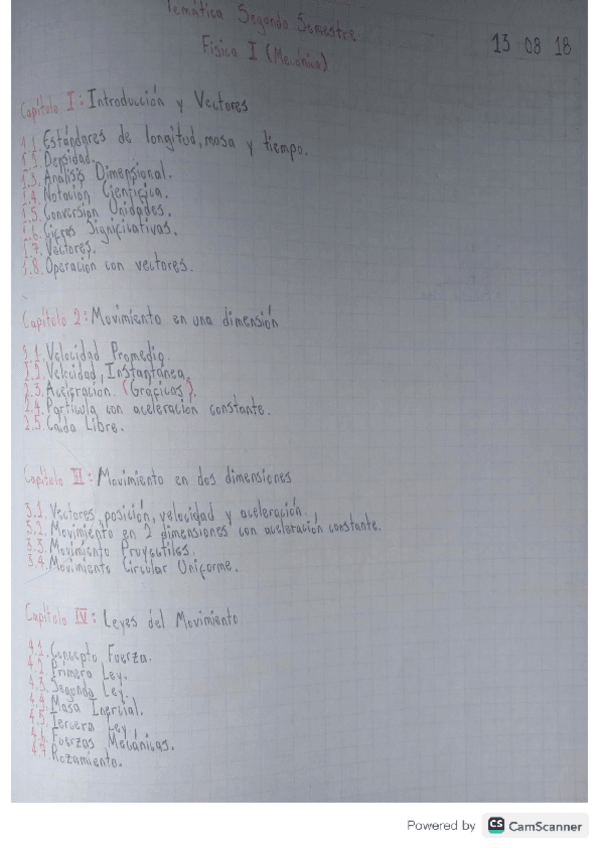 Temática Segundo Semestre
Física I (Mecánica)
13 08 18
Capítulo I: Introducción y Vectores
1.1. Estándares de longitud, masa y tiempo.
1.2. Densidad.
1.3. Análisis Dimensional.
1.4. Notación Científica.
1.5. Conversión Unidades.
1.6. Cifras Significativas.
1.7. Vectores.
1.8. Operación con vectores.
Capítulo 2: Movimiento en una dimensión
2.1. Velocidad Promedio.
2.2. Velocidad Instantánea.
2.3. Aceleración. (Gráficas).
2.4. Partícula con aceleración constante.
2.5. Caída Libre.
Capítulo III: Movimiento en dos dimensiones
3.1. Vectores, posición, velocidad y aceleración.
3.2. Movimiento en 2 dimensiones con aceleración constante.
3.3. Movimiento Proyectiles.
3.4. Movimiento Circular Uniforme.
Capítulo IV: Leyes del Movimiento
4.1. Concepto Fuerza.
4.2. Primera Ley.
4.3. Segunda Ley.
4.4. Masa Inercial.
4.5. Tercera Ley.
4.6. Fuerzas Mecánicas.
4.7. Rozamiento.
Powered by CS CamScanner